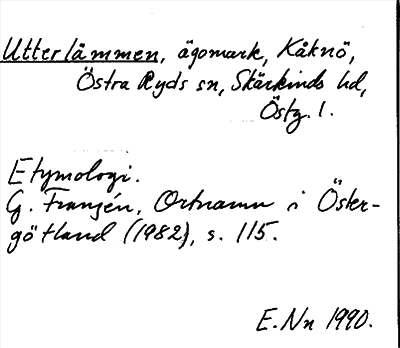 Utterlämmen, ägomark, Kåknö,
Östra Ryds sn, Skärkinds hd,
Östg. l.
Etymologi.
G. Franzén, Ortnamn i Öster-
götland (1982), s. 115.
E. Nn 1990.